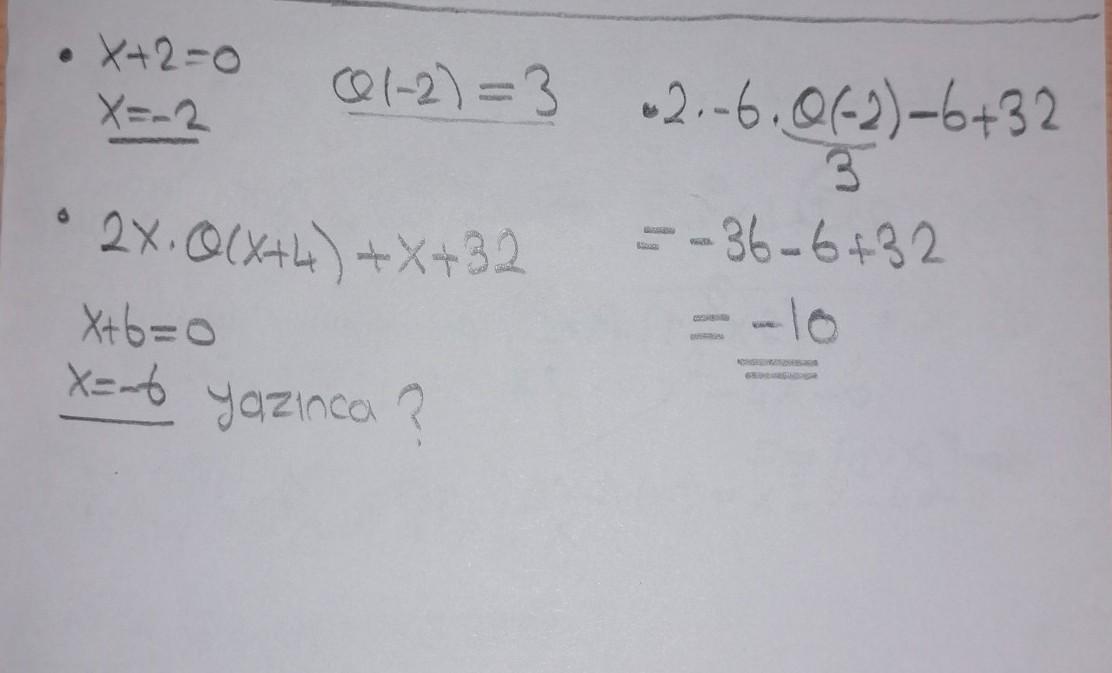 • x+2=0
x=-2
Q(-2) = 3
• 2x.Q(x+4)+x+32
x+6=0
x=-6 yazınca ?
•2.-6.Q(-2)-6+32
3
=-36-6+32
= -10